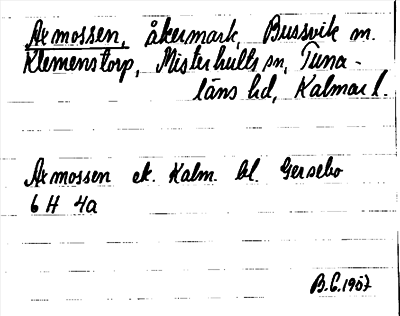 Axmossen, åkermark, Bussvik m.
Klemenstorp, Misterhults sn, Tuna-
läns hd, Kalmar l.
Axmossen ek. Kalm. bl. Gersebo
6 H 4a
B.E. 1957